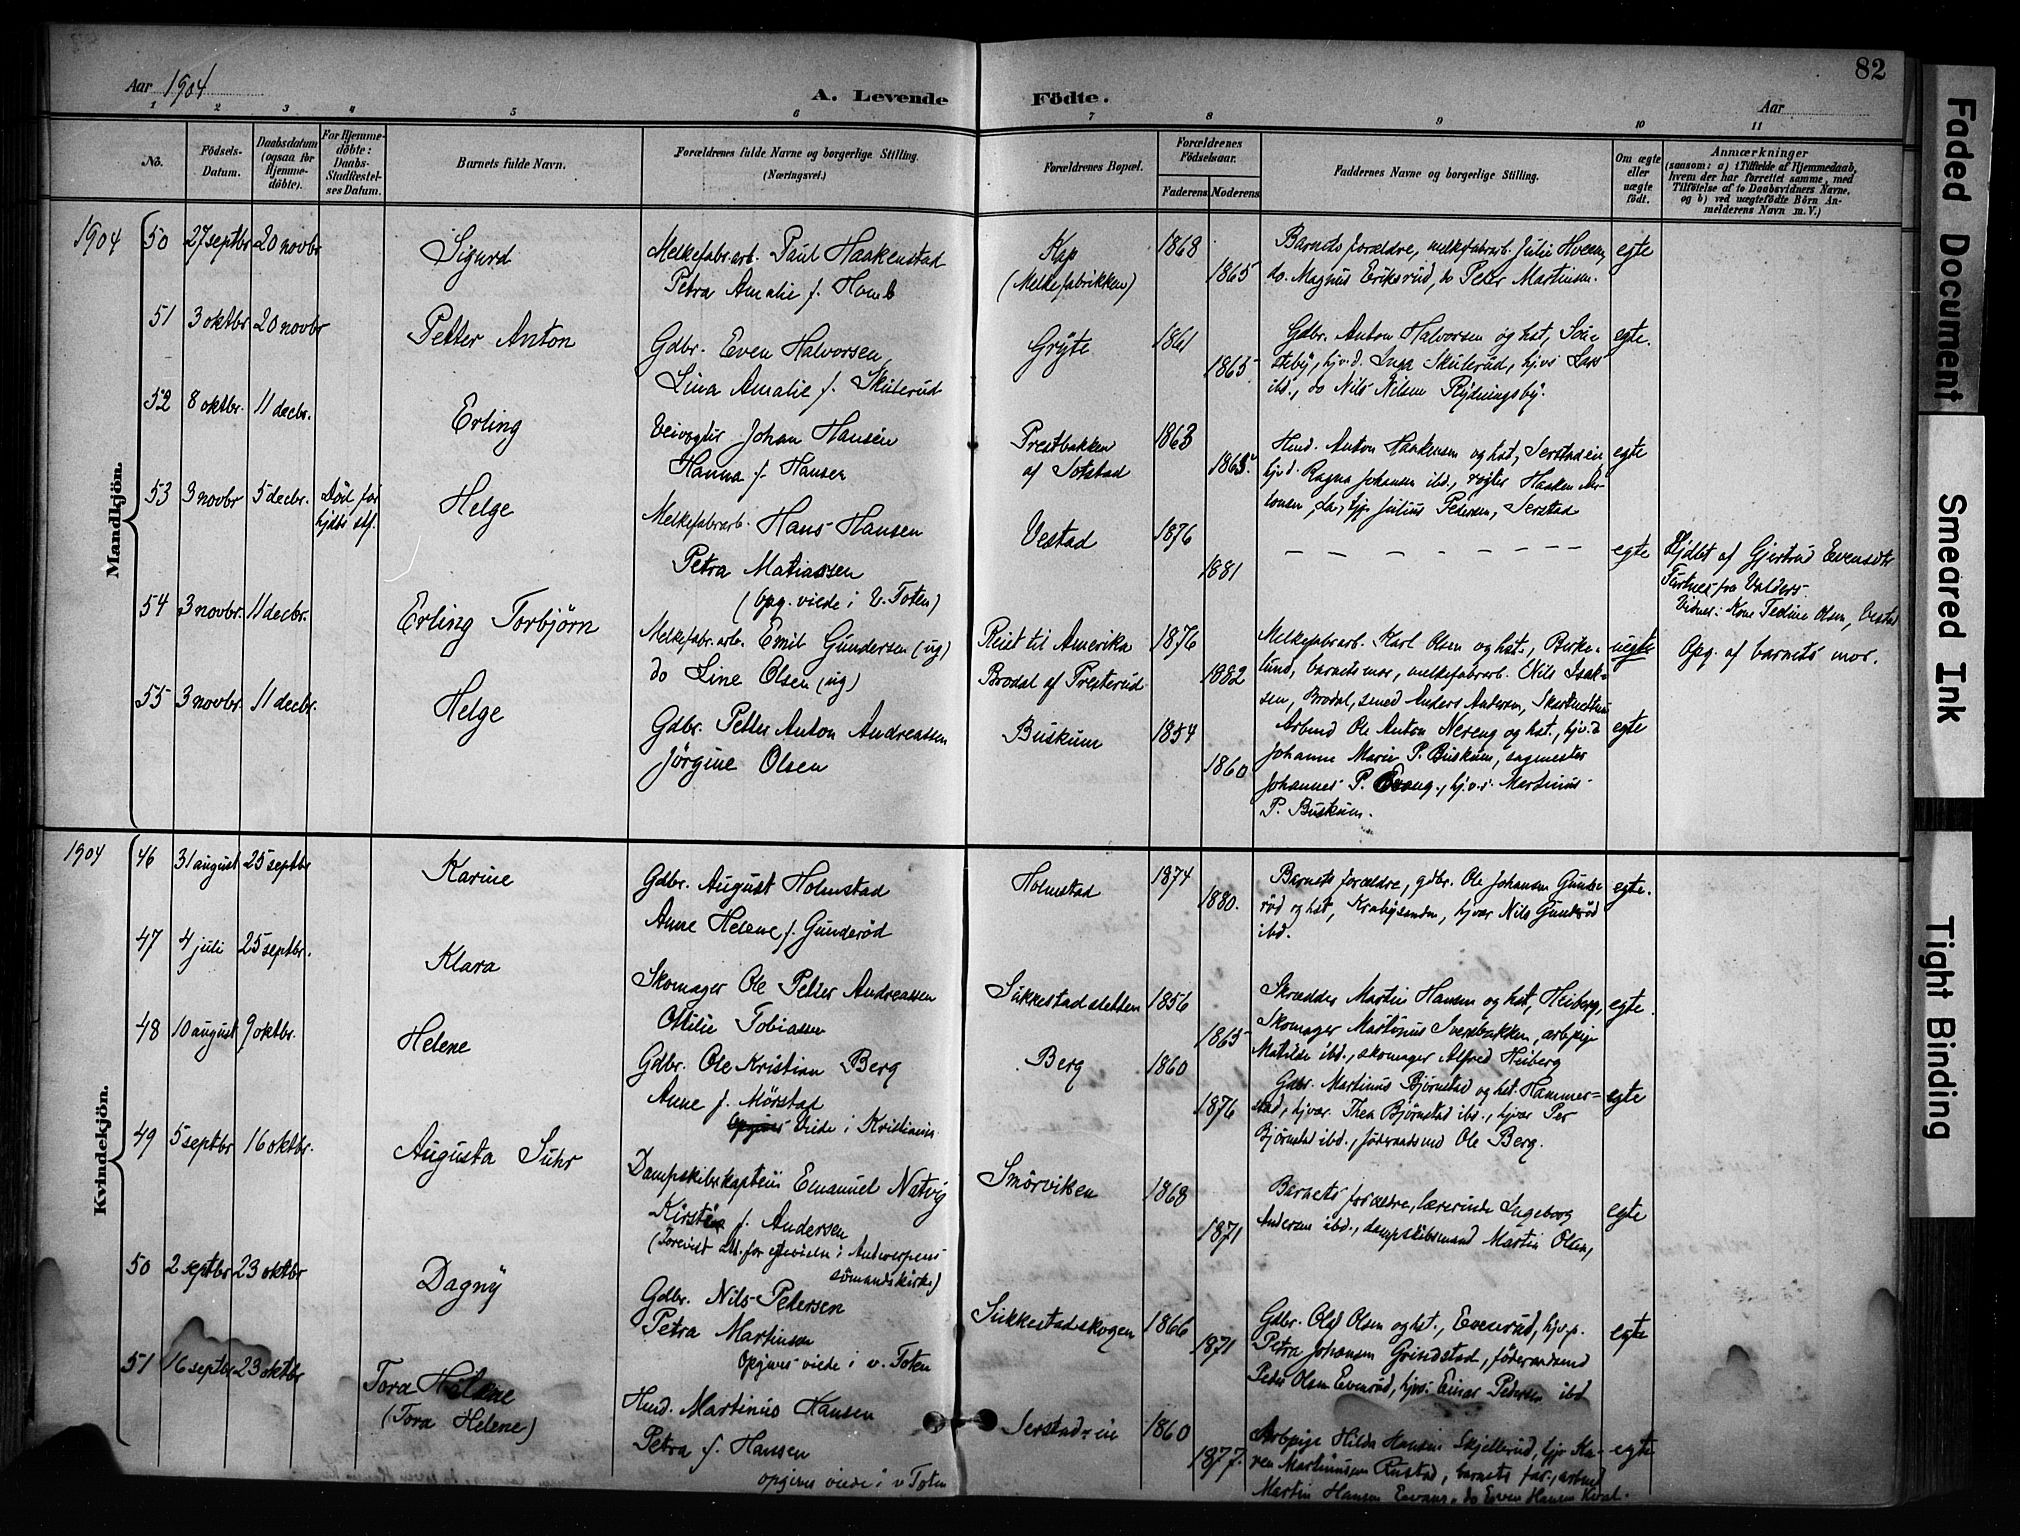 82
Aar 1904
A. Levende Födte.
Aar
1 2 3 4 5 6 7 8 9 10 11
No.
Födsels-Datum.
Daabsdatum (ogsaa for Hjemmedöbte).
For Hjemmedöbte: Daabs-Stadfestelses Datum.
Barnets fulde Navn.
Forældrenes fulde Navne og borgerlige Stilling. (Næringsvei.)
Forældrenes Bopæl.
Forældrenes Födselsaar.
Faderens. Moderens.
Faddernes Navne og borgerlige Stilling.
Om ægte eller uægte födt.
Anmærkninger
(saasom: a) i Tilfælde af Hjemmedaab,
hvem der har forrettet samme, med
Tilföielse af to Daabsvidners Navne,
og b) ved uægtefödte Börn An-
melderens Navn m. V.)
Mandkjön.
1904 50 27 septbr 20 novbr Sigurd
Melkefabr.arb. Paul Haakenstad
Petra Amalie f. Homb
Kap
(Melkefabrikken)
1868
1865
Barnets forældre, melkefabrarb. Julie Hveem,
do. Magnus Eriksrud, do Peder Martinsen.
egte
51 3 oktbr 20 novbr Petter Anton
Gdbr. Even Halvorsen
Lina Amalie f. Skulerud
Gryte
1861
1865
Gdbr. Anton Halvorsen og hst,
hjv.d. Inga Skulerud, hj.vs
ibd., do Nils Nilsen Rydningsby.
egte.
52 8 oktbr. 11 decbr. Erling
Veivogter Johan Hansen
Hanna f. Hansen
Prestbakken
af Sotstad
1863
1865.
Hmd. Anton Haakensen og hst, Serstadeie
hjvd. Ragna Johansen ibd., røgter Haaken
Julius Pedersen, Serstad
egte
53 3 novbr 5 decbr. Død før
hjdbs stf.
Helge
Melkefabrarb. Hans Hansen
Petra Matiassen
(Opg. viede i V. Toten)
Vestad
1876
1881
— — — — — — — —
egte
Hjdbt af Gjertrud Evensdtr
fra Valders.
Vidner: Kone Tedine Olsen, Vestad
54 3 novbr. 11 decbr. Erling Torbjørn
Melkefabr.arb. Emil Gundersen (ug)
do Line Olsen (ug)
Reist til Amerika
Brodal af Presterud
1876
1882
Melkefabrarb. Karl Olsen og hst., Birke-
lund, barnets mor, melkefabrarb. Nils Isak-
sen, Brodal, smed Anders Andersen,
uegte
Opg. af barnets mor.
55 3 novbr. 11 decbr. Helge
Gdbr. Petter Anton Andreassen
Jørgine Olsen
Buskum
1854
1860
Arbmd Ole Anton Nereng og hst., hjv.d
Johanne Marie P. Buskum, sagmester
Johannes P. hj.v.s. Martinius
P. Buskum.
egte
Kvindekjön.
1904 46 31 august 25 septbr Karine
Gdbr. August Holmstad
Anne Helene f. Gunderød
Holmstad
1874
1880.
Barnets forældre, gdbr. Ole Johansen Gunde-
rød og hst, hjvær Nils Gunderød
ibd.
egte.
47 4 juli 25 septbr. Klara
Skomager Ole Petter Andreassen
Otilie Tobiassen
Sukkestadsletten
1856
1865
Skrædder Martin Hansen og hst, Heiberg,
Skomager Martinius Iversbakken, arbpige
Matilde ibd., skomager Alfred Heiberg
egte.
48 10 august 9 oktbr. Helene
Gdbr. Ole Kristian Berg
Anne f. Mørstad
viede i Kristiania
Berg
1860
1876
Gdbr. Martinus Bjørnstad og hst. Hammer-
stad, hjvær. Thea Bjørnstad ibd., hjvær Per
Bjørnstad ibd., føderaadsmd Ole Berg.
egte
49 5 septbr 16 oktbr. Augusta Suhr
Dampskibskaptein Emanuel Natvig
Kirstine f. Andersen
(Forevist att. for egtevielse i Antwerpens
sømandskirke)
Smörviken
1868
1871
Barnets forældre, lærerinde Ingeborg
Andersen ibd., dampskibsmand Martin Olsen,
egte
50 2 septbr 23 oktbr Dagny
Gdbr. Nils Pedersen
Petra Martinsen
Opgives viede i V. Toten
Sukkestadskogen
1866
1871
Gdbr. Olaf Olsen og hst., Evenrud, hjv.p.
Petra Johansen Grindstad, føderaadsmd
Peder Olsen Evenrud, hjvs. Einar Pedersen ibd
egte
51 16 septbr 23 oktbr Tora Helene
(Tora Helene)
Hmd. Martinius Hansen
Petra f. Hansen
opgives viede i v Toten
Serstad-eie
1860
1877.
Arbpige Hilda Hansen Skjellerud, hjv Ka-
ren Martinusen Rustad, barnets far, arbmd
Martin Hansen do Even Hansen Kval.
egte
Faded Document
Smeared Ink
Tight Binding